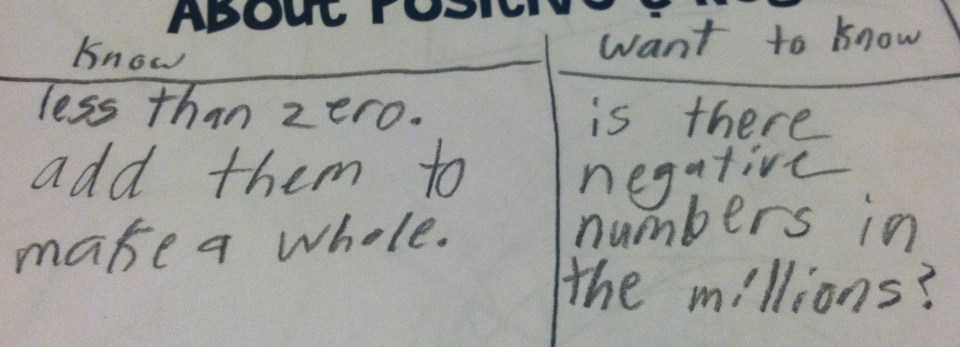 ABOUT POSITIVE & NEG
Know
less than zero.
add them to
make a whole.
want to know
is there
negative
numbers in
the millions?